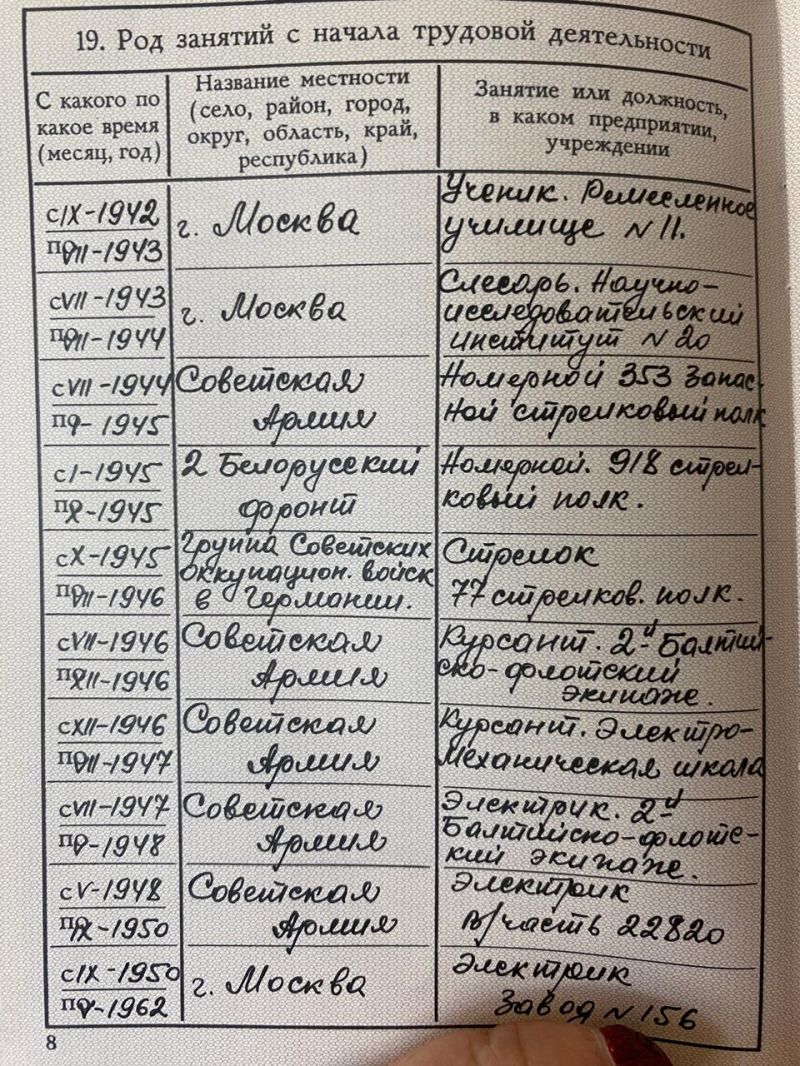 19. Род занятий с начала трудовой деятельности
С какого по
какое время
(месяц, год)
Название местности
(село, район, город,
округ, область, край,
республика)
Занятие или должность,
в каком предприятии,
учреждении
с IX-1942
по VII-1943
г. Москва
Ученик. Ремесленное
училище N 11.
с VII-1943
по VII-1944
г. Москва
Слесарь. Научно-
исследовательский
институт N 20
с VII-1944
по I-1945
Советская
Армия
Номерной 353 Запас-
ной стрелковый полк
с I-1945
по X-1945
2 Белорусский
фронт
Номерной. 918 стрел-
ковый полк.
с X-1945
по VII-1946
Группа Советских
оккупацион. войск
в Германии.
Стрелок
77 стрелков. полк.
с VII-1946
по XII-1946
Советская
Армия
Курсант. 2-й Балтий-
ско-флотский
экипаже.
с XII-1946
по VII-1947
Советская
Армия
Курсант. Электро-
механическая школа
с VII-1947
по V-1948
Советская
Армия
Электрик. 2-й
Балтийско-флотс-
кий экипаже.
с V-1948
по IX-1950
Советская
Армия
Электрик
в/часть 22820
с IX-1950
по V-1962
г. Москва
Электрик
Завод N 156
8